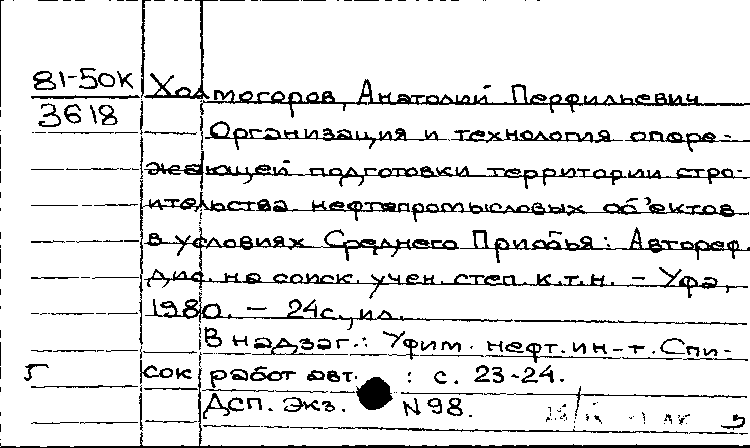 81-50К Холмогоров, Анатолий Перфильевич
3618
Организация и технология опере-
жающей подготовки территории стро-
ительства нефтепромысловых об'ектов
в условиях Среднего Приобья: Автореф.
дис. на соиск. учен. степ. к.т.н. - Уфа,
1980. - 24с., ил.
В надзаг.: Уфим. нефт. ин-т. Спи-
5 сок работ авт. : с. 23-24.
ДСП. Экз. N98.